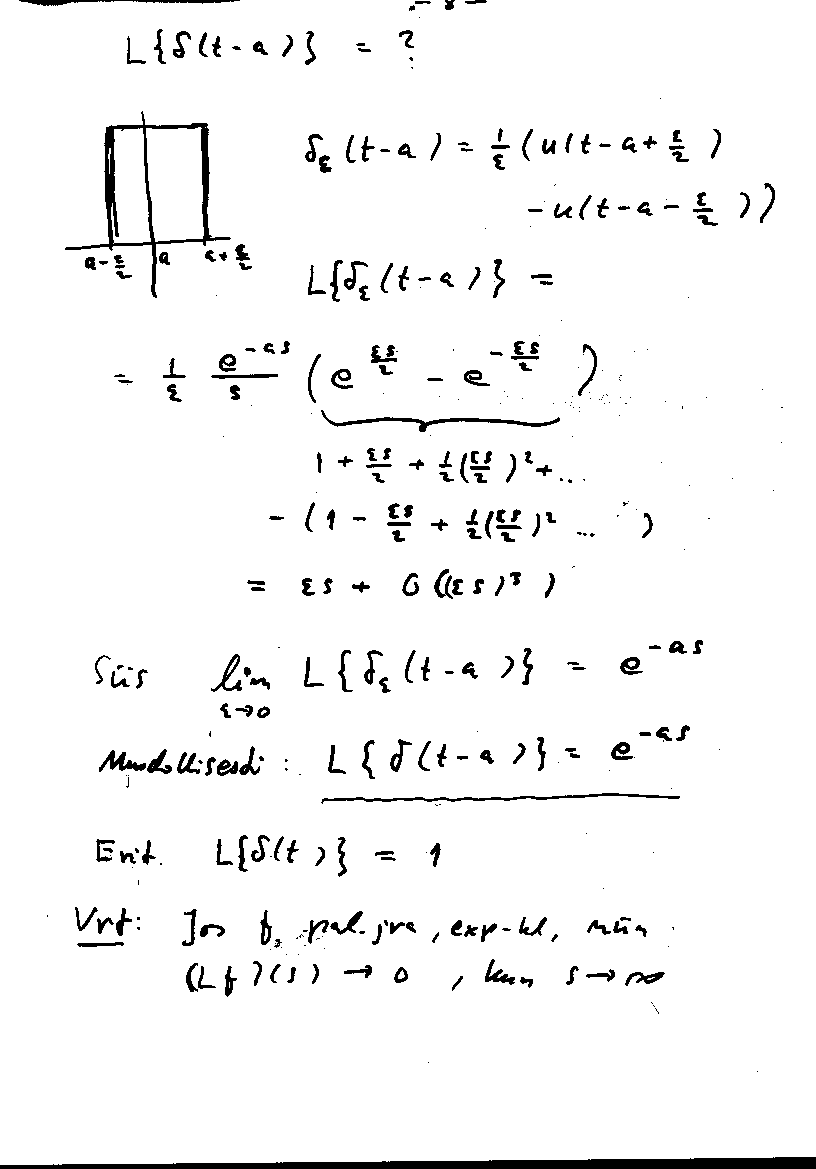 - 8 -
L{δ(t-a)} = ?
δ_ε(t-a) = 1/ε (u(t-a+ε/2)
- u(t-a-ε/2))
a-ε/2 a a+ε/2
L{δ_ε(t-a)} =
= 1/ε e^{-as}/s (e^{εs/2} - e^{-εs/2})
1 + εs/2 + 1/2(εs/2)² + ...
- (1 - εs/2 + 1/2(εs/2)² ... )
= εs + O((εs)³)
Siis lim ε→0 L{δ_ε(t-a)} = e^{-as}
Muodollisesti: L{δ(t-a)} = e^{-as}
Erit. L{δ(t)} = 1
Vrt: Jos f pal. jva, exp-kl, niin
(Lf)(s) → 0, kun s → ∞